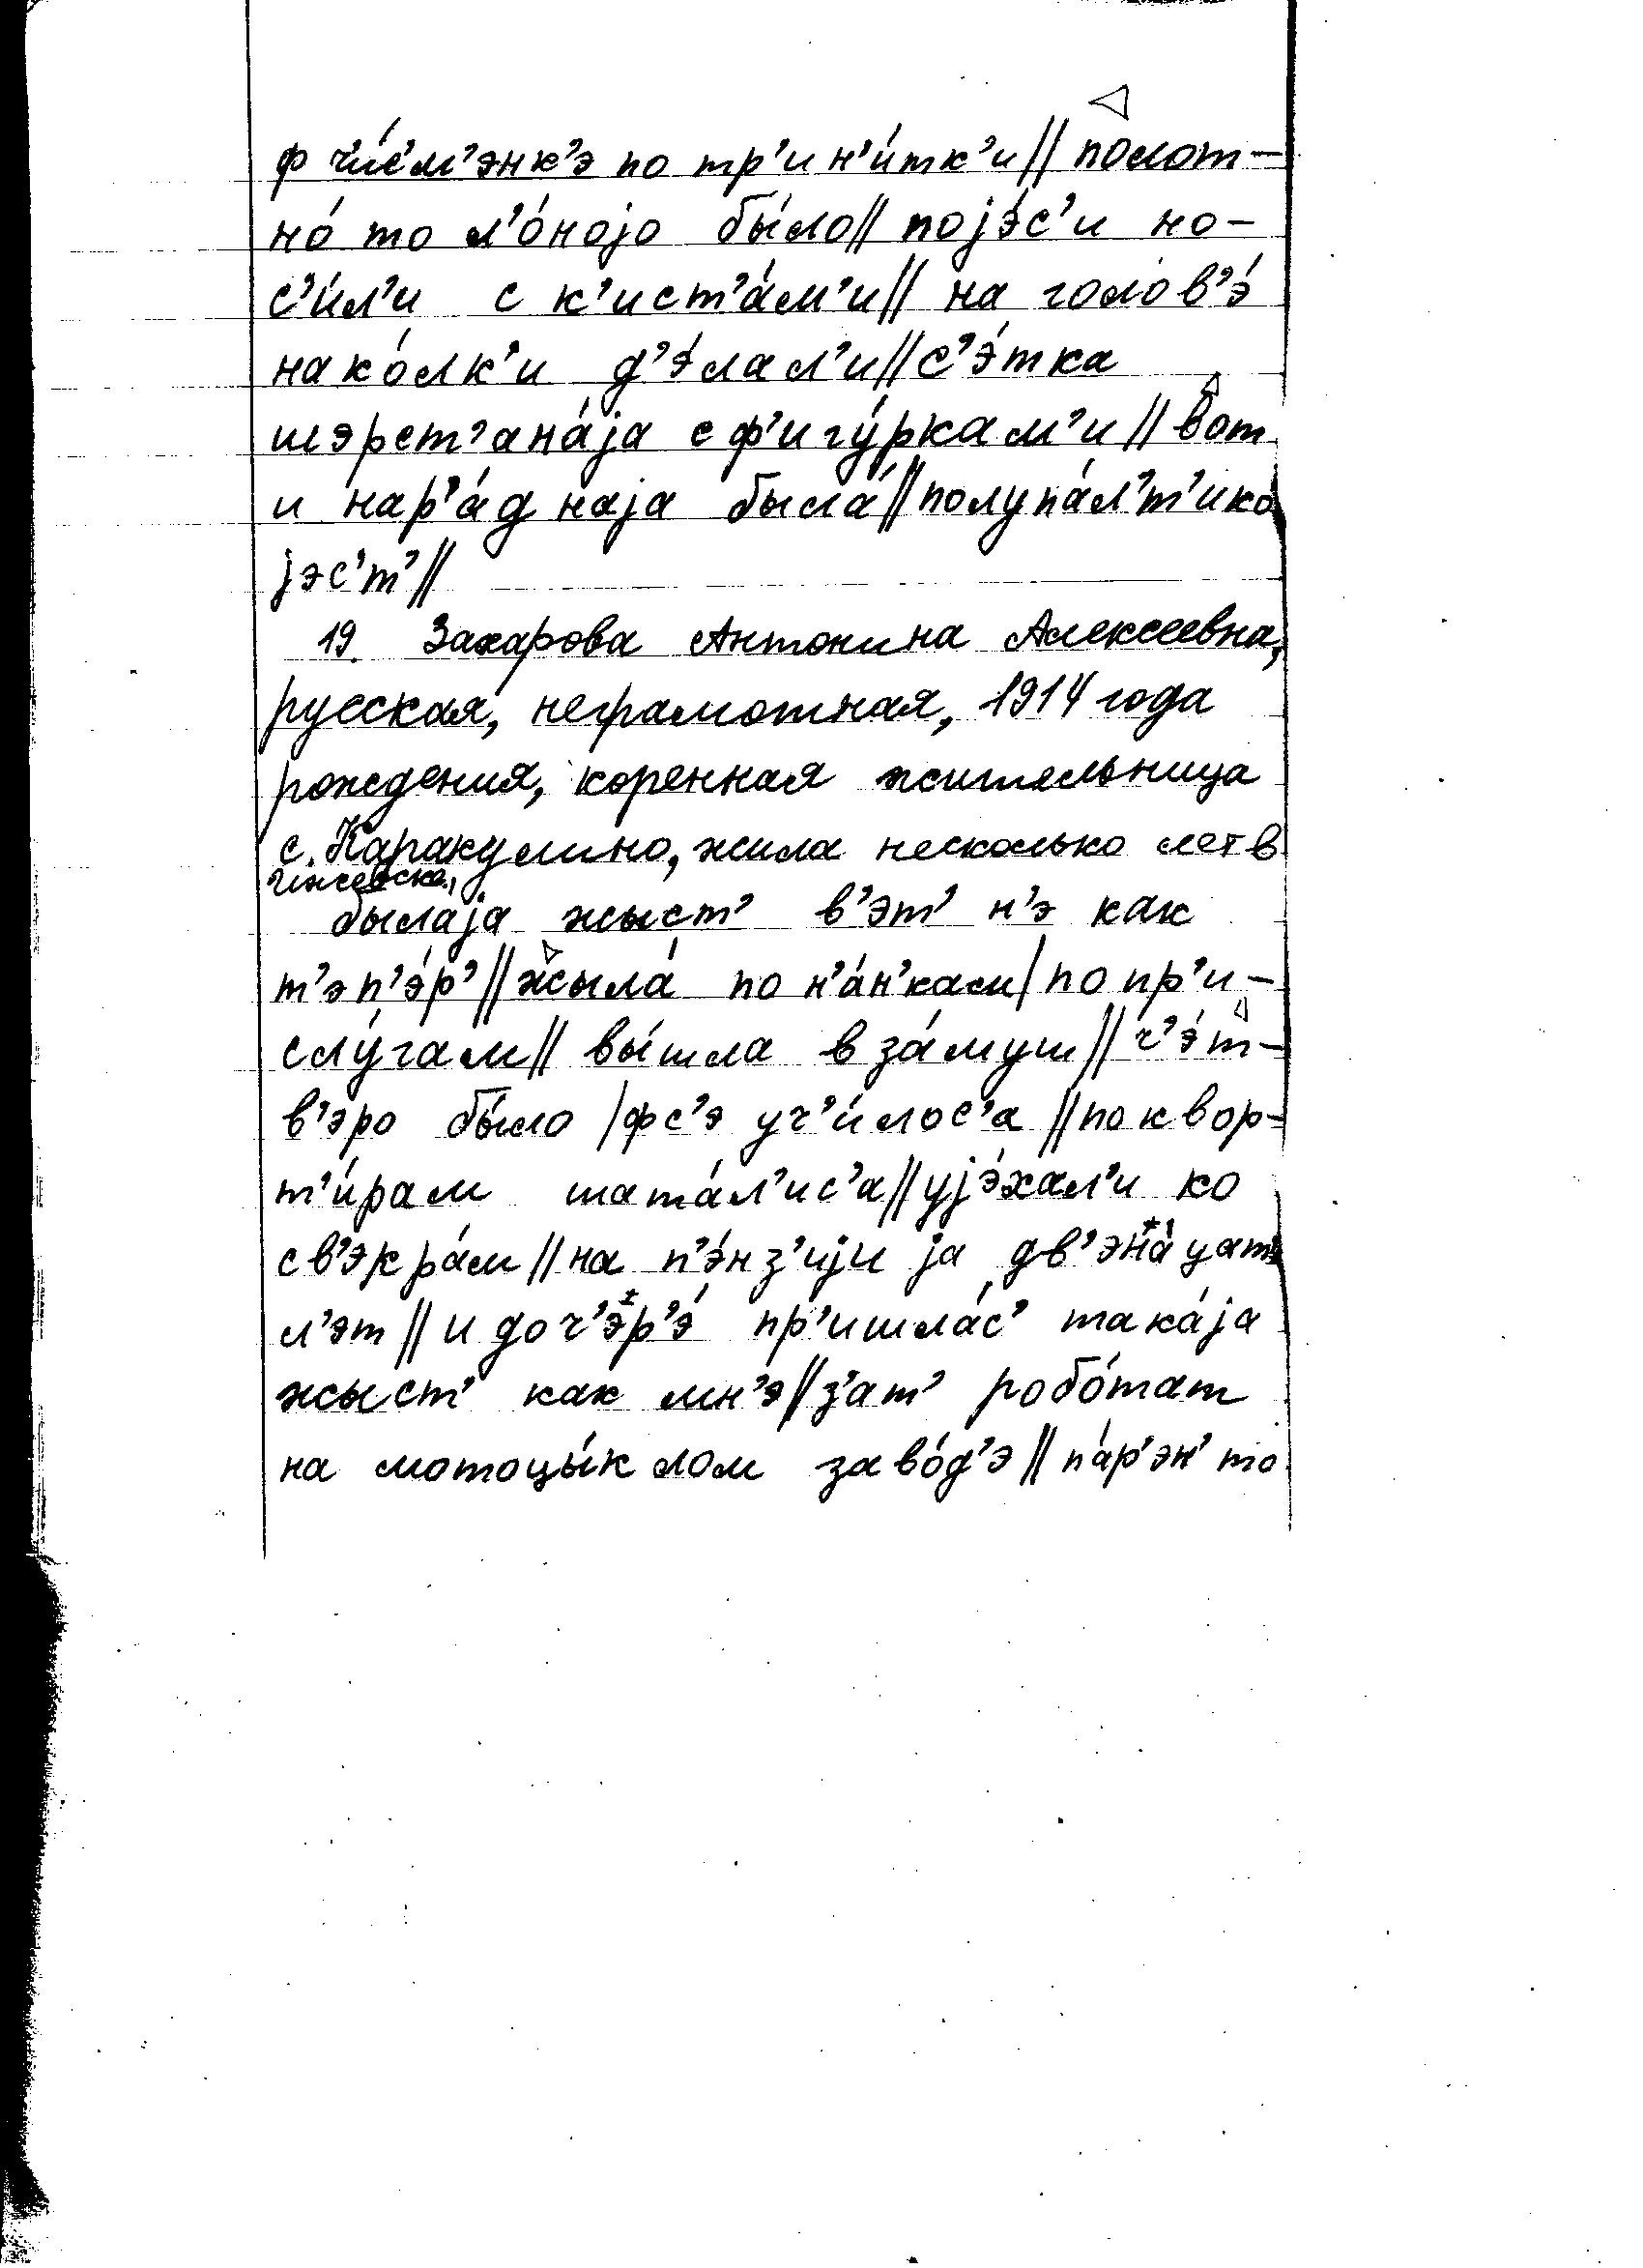 ф ч'и́с'м'энк'э по тр'и н'и́тк'и // полот-
но́ то л'о́нојо бы́ло // појэ́с'и но-
с'и́л'и с к'ист'а́м'и // на голов'э́
нако́лк'и д'э́лал'и // с'э́тка
шэрст'ана́ја с ф'игу́ркам'и // вот
и нар'а́днаја была́ // полупа́л'т'ико
јэс'т' //
19. Захарова Антонина Алексеевна,
русская, неграмотная, 1914 года
рождения, коренная жительница
с. Каракулино, жила несколько лет в
Ижевске.
былаја жыст' в'эт' н'э как
т'эп'э́р' // жыла́ по н'а́н'кам / по пр'и-
слу́гам // вы́шла в за́муш // ч'э́т-
в'эро бы́ло / фс'э уч'и́лос'а // по квор-
т'и́рам шата́л'ис'а // ујэ́хал'и ко
св'экра́м // на п'э́нз'ији ја дв'эна́цат'
л'эт // и доч'эр'э́ пр'ишла́с' така́ја
жыст' как мн'э // з'ат' робо́тат
на мотоцы́клом заво́д'э // па́р'эн' то